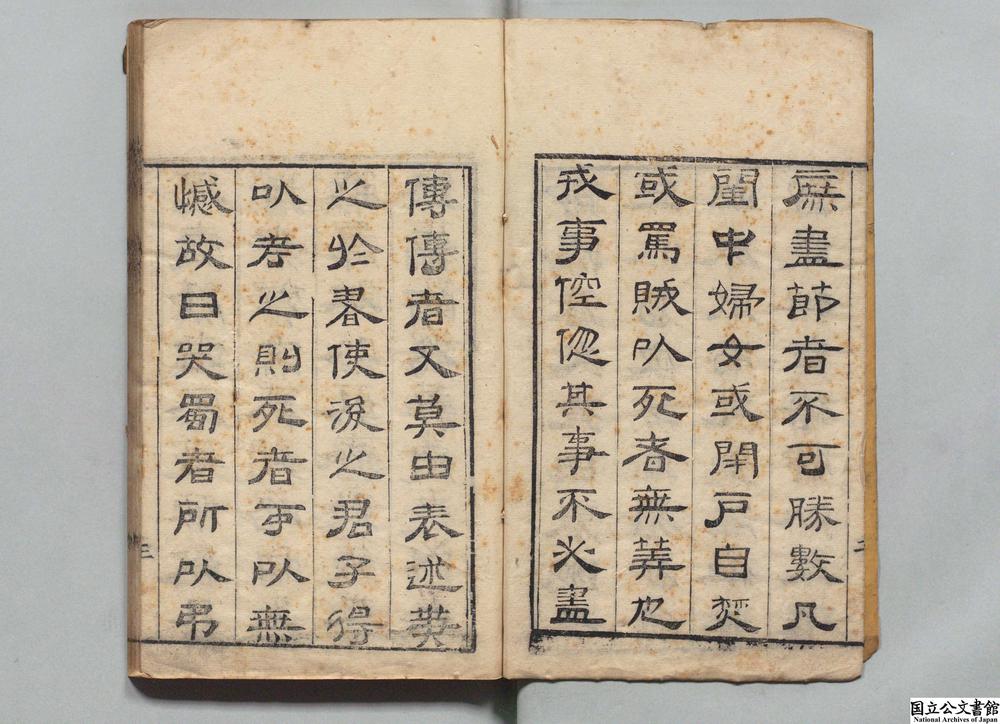 庶盡節者不可勝數凡
閨中婦女或閉戶自焚
或罵賊以死者無筭也
戎事倥偬其事不必盡
傳傳者又莫由表述
之於書使後之君子得
以考之則死者可以無
憾故曰哭蜀者所以吊
三
国立公文書館
National Archives of Japan